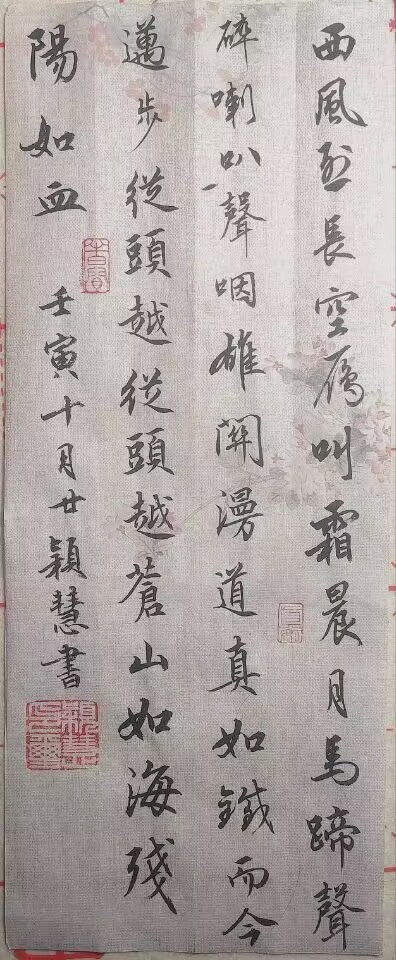 西風烈長空鴈叫霜晨月馬蹄聲
碎喇叭聲咽雄關漫道真如鐵而今
邁步從頭越從頭越蒼山如海殘
陽如血
壬寅十月廿穎慧書